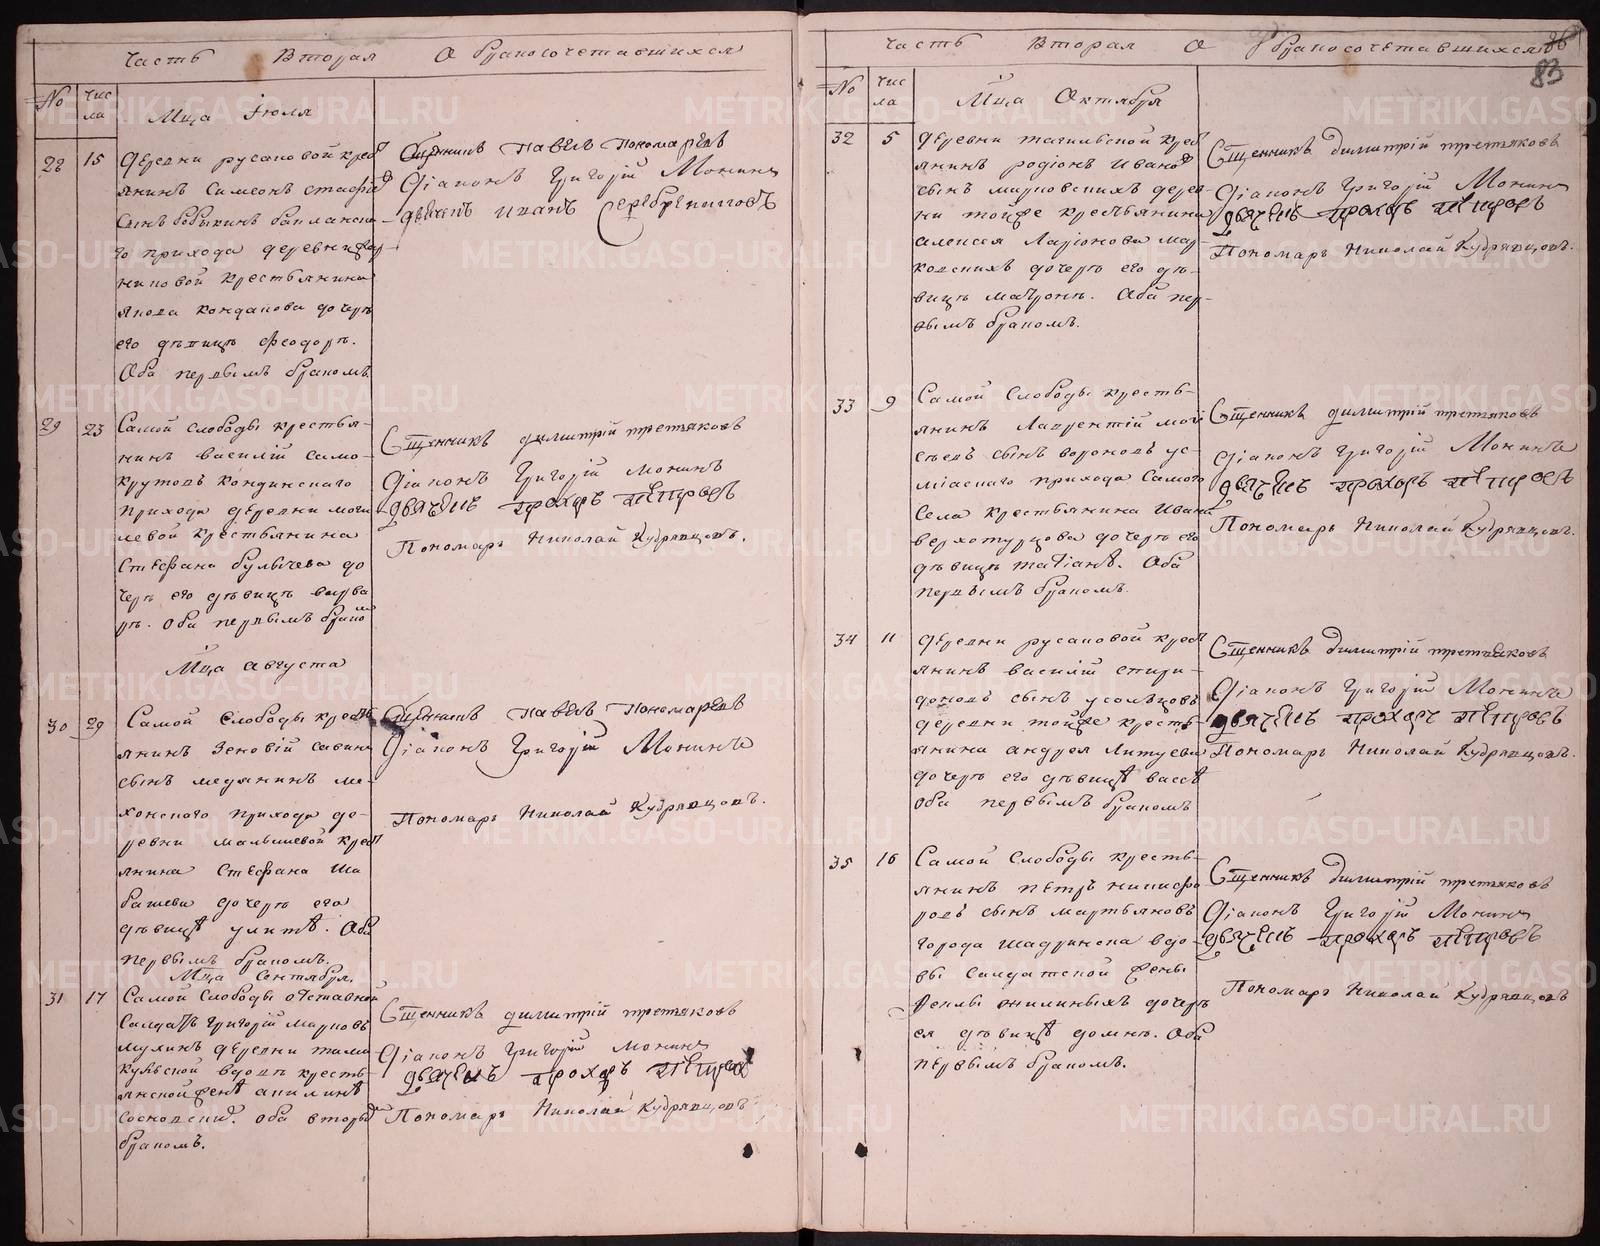 Часть Вторая О бракосочетавшихся
№ Чис
ла
Мца Iюля
28 15 деревни русаковой крес
янинъ Самсонъ
сынъ
го прихода деревни
никовой крестьянина
якова кондакова дочерь
его дѣвицѣ феодорѣ.
Оба первымъ бракомъ
Сщенникъ павелъ пономаревъ
Діаконъ Григорій Монинъ
дьячекъ иванъ Серебрениковъ
29 23 Самой слободы крестья-
нинъ василій само-
крутовъ кондинскаго
прихода деревни моги
левой крестьянина
Стефана булычева до
черь его дѣвицѣ варва
рѣ. оба первымъ браком
Сщенникъ димитрій третьяковъ
Діаконъ Григорій Монинъ
дьячекъ прохоръ петровъ
Пономарь Николай Кудрявцовъ.
Мца августа
30 29 Самой Слободы кресть
янинъ Зеновій савинъ
сынъ медянинъ ме-
хонскаго прихода де-
ревни малышевой крест
янина Стефана Ша
башева дочерь его
дѣвицѣ улитѣ. Оба
первымъ бракомъ.
Сщенникъ павелъ Пономаревъ
Діаконъ Григорій Монинъ
Пономарь Николай Кудрявцовъ.
Мца Сентября.
31 17 Самой Слободы отставной
Салдатъ Григорій Марковъ
мухинъ деревни тама
кульской вдовѣ кресть-
янской женѣ акилинѣ
оба вторы
бракомъ.
Сщенникъ димитрій третьяковъ
Діаконъ Григорій Монинъ
дьячекъ прохоръ петровъ
Пономарь Николай Кудрявцовъ
Часть Вторая О бракосочетавшихся
86
83
№ Чис
ла
Мца Октября
32 5 деревни тагильской крес
янинъ родіонъ Ивановъ
сынъ марковскихъ дерев-
ни тойже крестьянина
алексея Ларіонова мар-
ковскихъ дочерь его дѣ-
вицѣ матронѣ. Оба пер-
вымъ бракомъ.
Сщенникъ димитрій третьяковъ
Діаконъ Григорій Монинъ
дьячекъ прохоръ петровъ
Пономарь Николай Кудрявцовъ.
33 9 Самой Слободы кресть-
янинъ Лаврентій мои
сеевъ сынъ вороновъ ус-
міаскаго прихода Самого
Села крестьянина Ивана
верхотурцова дочерь его
дѣвицѣ татіанѣ. Оба
первымъ бракомъ.
Сщенникъ димитрій третьяковъ
Діаконъ Григорій Монинъ
дьячекъ прохоръ петровъ
Пономарь Николай Кудрявцовъ.
34 11 деревни русаковой крест
янинъ василій спири-
доновъ сынъ усольцовъ
деревни тойже кресть-
янина андрея Литуева
дочерь его дѣвицѣ вассѣ
оба первымъ бракомъ
Сщенникъ димитрій третьяковъ
Діаконъ Григорій Монинъ
дьячекъ прохоръ петровъ
Пономарь Николай Кудрявцовъ.
35 16 Самой Слободы кресть-
янинъ петръ никифо
ровъ сынъ мартьяновъ
города шадринска вдо-
вы Салдатской жены
феклы жилиныхъ дочерь
ея дѣвицѣ домнѣ. Оба
первымъ бракомъ.
Сщенникъ димитрій третьяковъ
Діаконъ Григорій Монинъ
дьячекъ прохоръ петровъ
Пономарь Николай Кудрявцовъ
METRIKI.GASO-URAL.RU